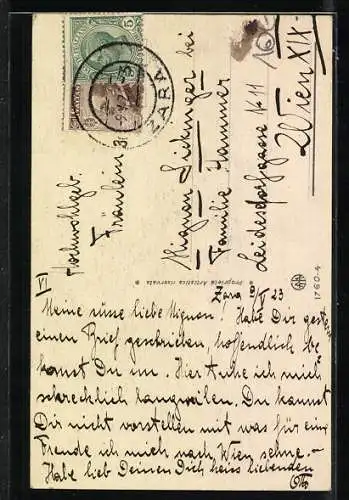 ZARA
Hochwohlgeb.
Fräulein
Mignon bei
Familie Hammer
Leidesdorfgasse No 11
Wien XIX.
16
Proprietà Artistica riservata
1760-4
VI
Zara 9/V 23
Meine süsse liebe Mignon! Habe Dir gestern
einen Brief geschrieben, hoffendlich be
kamst Du ihn. Hier thue ich mich
schrecklich langweilen. Du kannst
Dir nicht vorstellen mit was für eine
Freude ich mich nach Wien sehne.-
Habe lieb Deinen Dich heiss liebenden
Otto